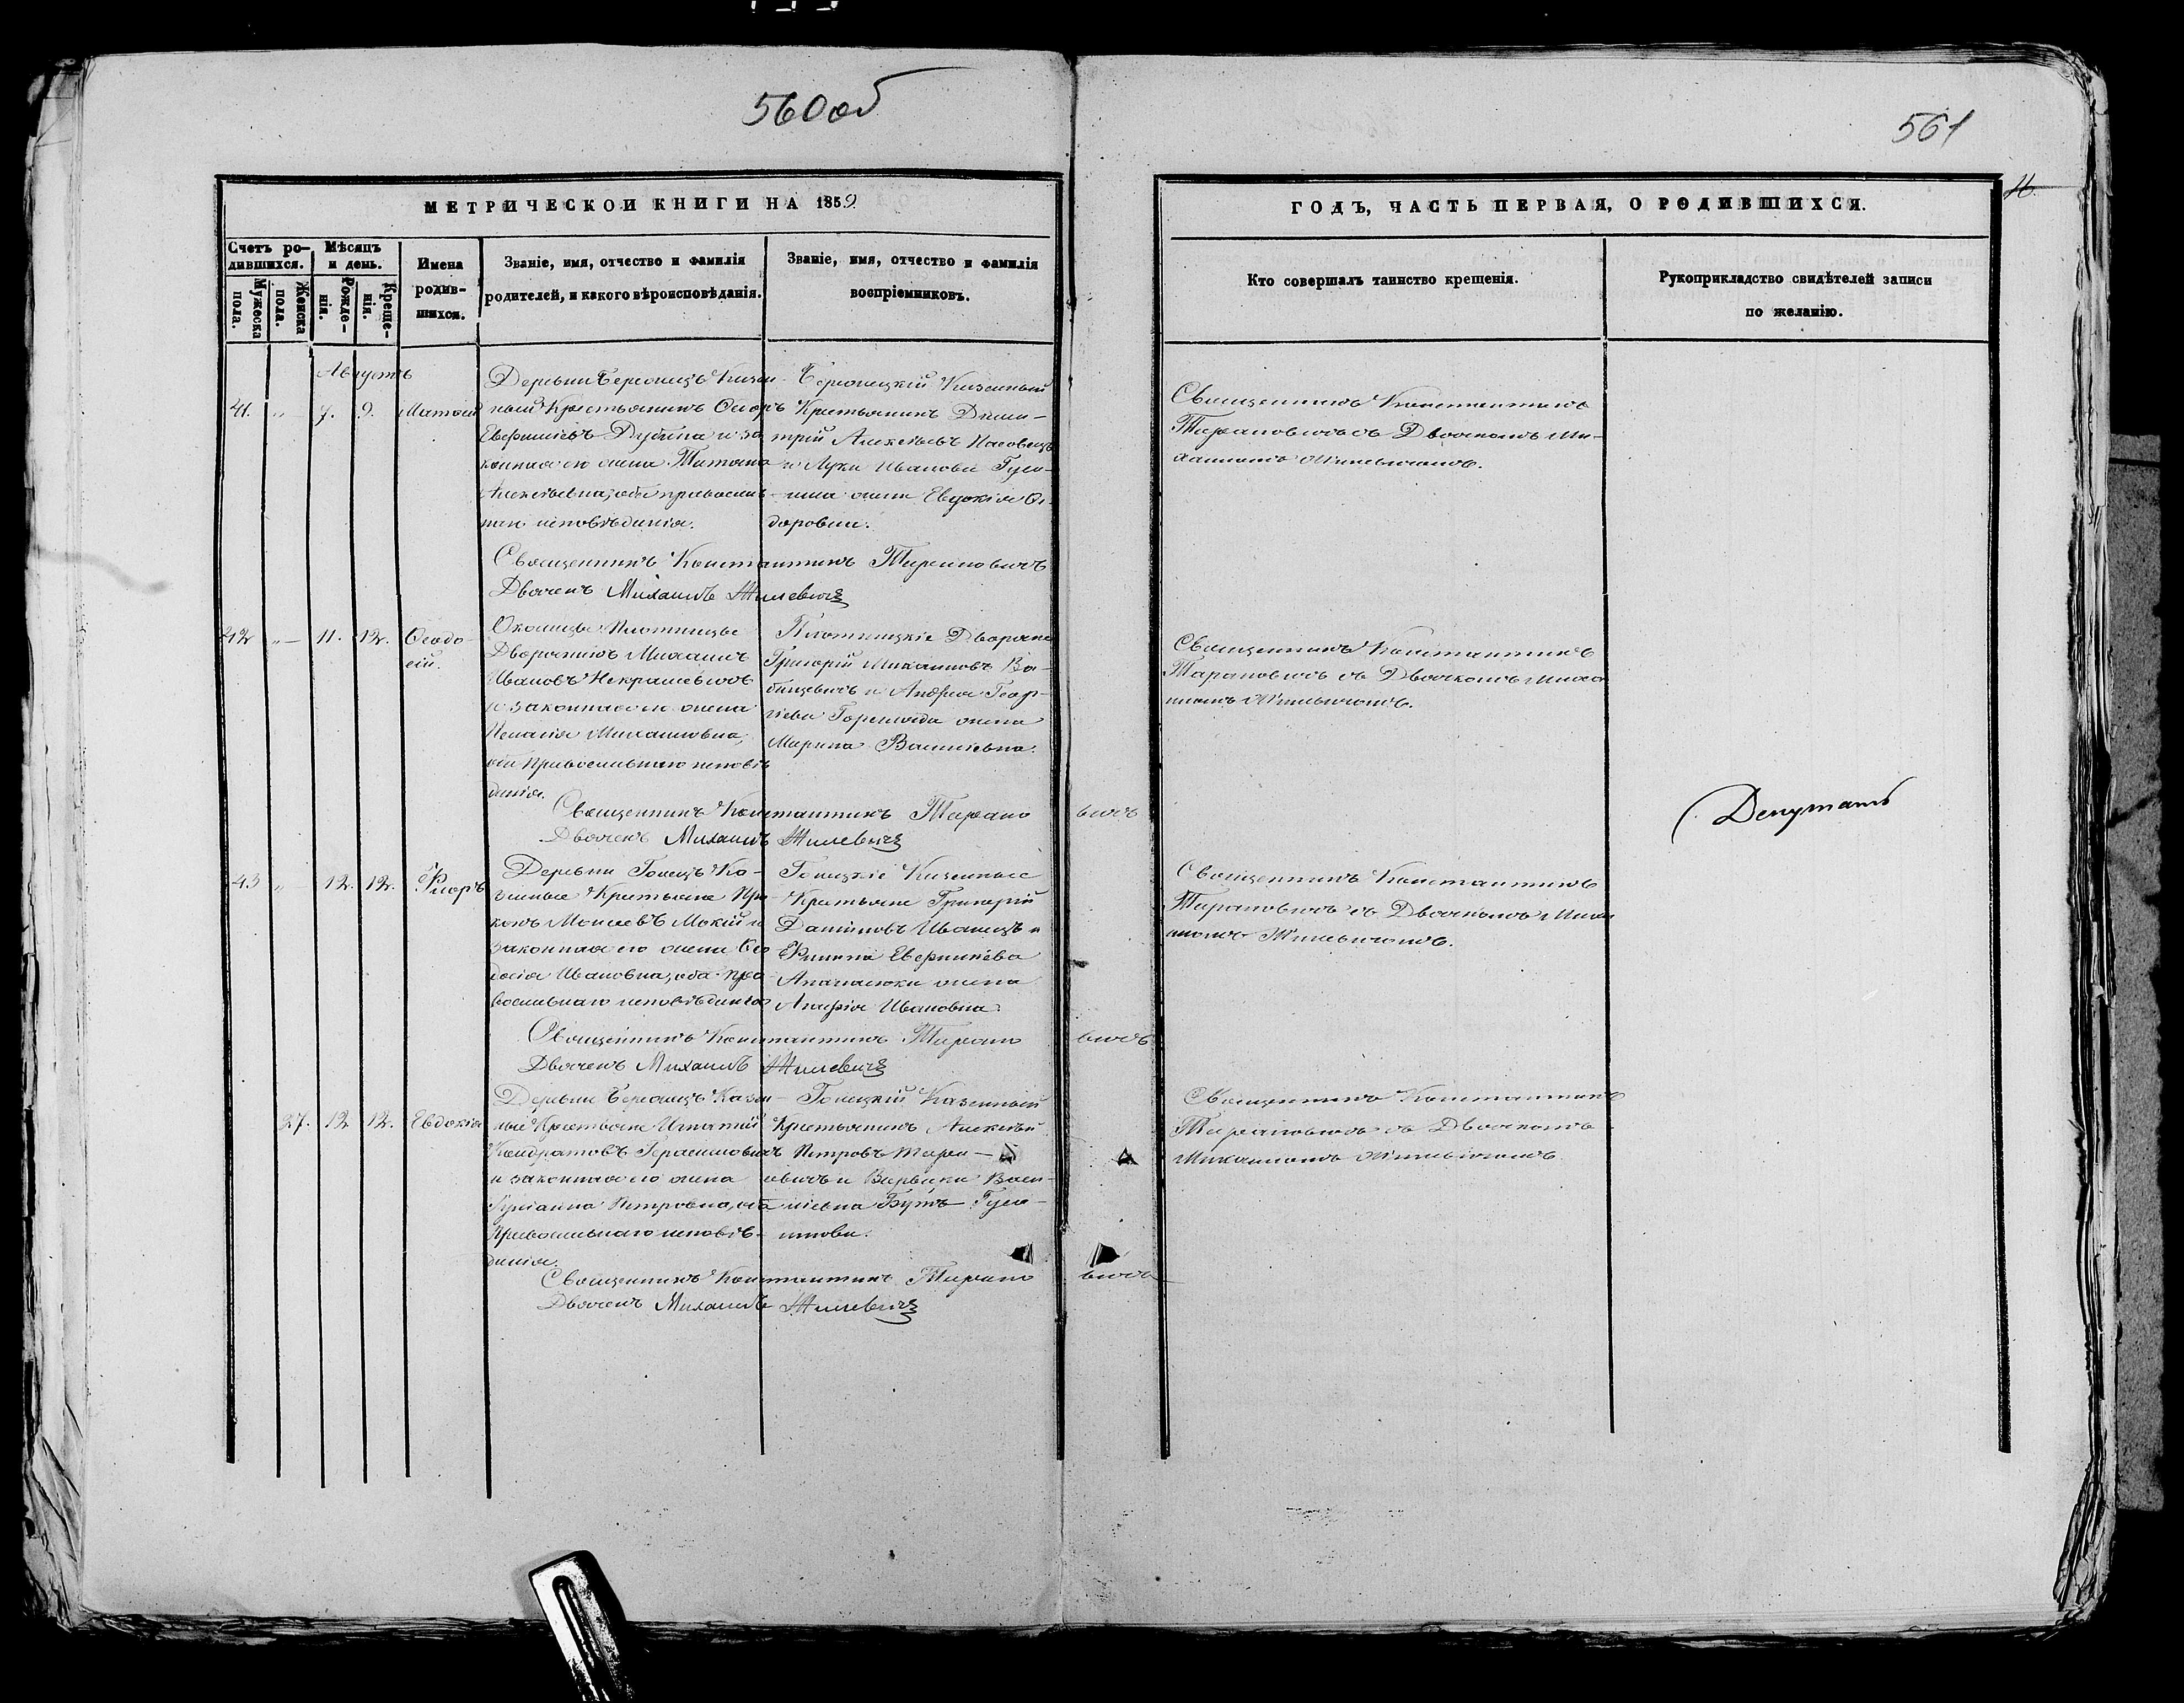 560об
561
МЕТРИЧЕСКОЙ КНИГИ НА 1859
ГОДЪ, ЧАСТЬ ПЕРВАЯ, О РОДИВШИХСЯ.
Счетъ ро-
дившихся.
Мужеска
пола.
Женска
пола.
Мѣсяцъ
и день.
Рожде-
нія.
Креще-
нія.
Имена
родив-
шихся.
Званіе, имя, отчество и фамилія
родителей, и какого вѣроисповѣданія.
Званіе, имя, отчество и фамилія
воспріемниковъ.
Кто совершалъ таинство крещенія.
Рукоприкладство свидѣтелей записи
по желанію.
Августъ
41. "— 7. 9.
Деревни Казен-
ный Крестьянинъ Ѳеодоръ
Дубина и за
конная его жена Татіана
Алексѣевна, оба православ-
наго исповѣданія.
Казенный
Крестьянинъ Дими-
трій Алексѣевъ
и Луки Иванова
жена Евдокія Ѳе-
дорова.
Священникъ Константинъ Тарановичъ
Дьячекъ Михаилъ Жилевичъ
Священникъ Константинъ
Тарановичъ съ Дьячкомъ Ми-
хаиломъ Жилевичомъ.
42 "— 11. 12. Ѳеодо-
сій.
Околицы Плотницы
Дворянинъ Михаилъ
Ивановъ Некрашевичъ
и законная его жена
Пелагія Михаиловна,
оба Православнаго исповѣ
данія.
Плотницкіе Дворяне
Григорій Михаиловъ
и Андрея Геор-
гіева жена
Марина Васильевна.
Священникъ Константинъ Тарано вичъ
Дьячекъ Михаилъ Жилевичъ
Священникъ Константинъ
Тарановичъ съ Дьячкомъ Миха
иломъ Жилевичомъ.
Депутатъ
43 " 12. 12. Флоръ
Деревни Гонецъ Ка-
зенные Крестьяне Про
копъ Моисеевъ Мокій и
законная его жена Ѳео
досія Ивановна, оба пра
вославнаго исповѣданія
Гоницкіе Казенные
Крестьяне Григорій
Даниловъ Иванецъ и
жена
Агафія Ивановна.
Священникъ Константинъ Тарано вичъ
Дьячекъ Михаилъ Жилевичъ
Священникъ Константинъ
Тарановичъ съ Дьячкомъ Миха
иломъ Жилевичомъ.
27. 12 12. Евдокія
Деревни Казен-
ные Крестьяне Игнатій
Кондратовъ Герасимовичъ
и законная его жена
Петровна, оба
Православнаго исповѣ-
данія.
Гоницкій Казенный
Крестьянинъ Алексѣй
Петровъ Таран-
овичъ и Варвара Васи-
льевна
Священникъ Константинъ Тарано вичъ
Дьячекъ Михаилъ Жилевичъ
Священникъ Константинъ
Тарановичъ съ Дьячкомъ
Михаиломъ Жилевичомъ